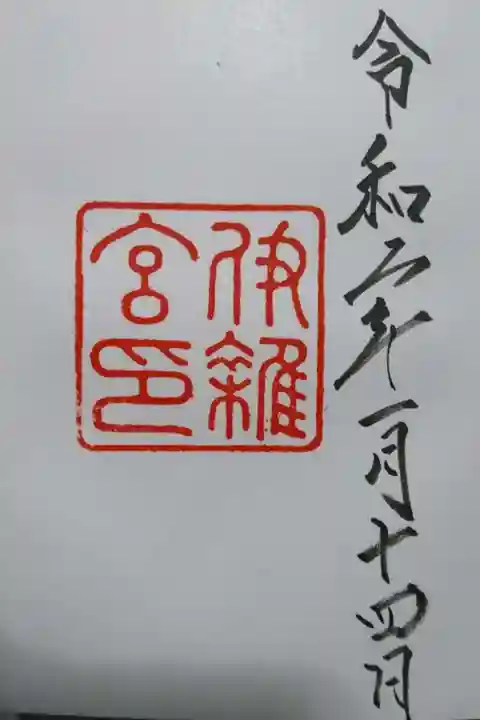 令和二年一月十四日
伊雜
宮印